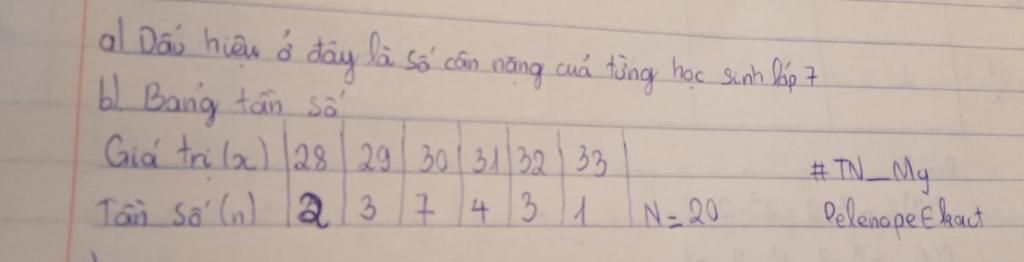 a) Dấu hiệu ở đây là số cân nặng cuả từng học sinh lớp 7
b) Bảng tần số
Giá trị (x) 28 29 30 31 32 33
Tần số (n) 2 3 7 4 3 1 N = 20
#TN_My
PelenopeEkaut